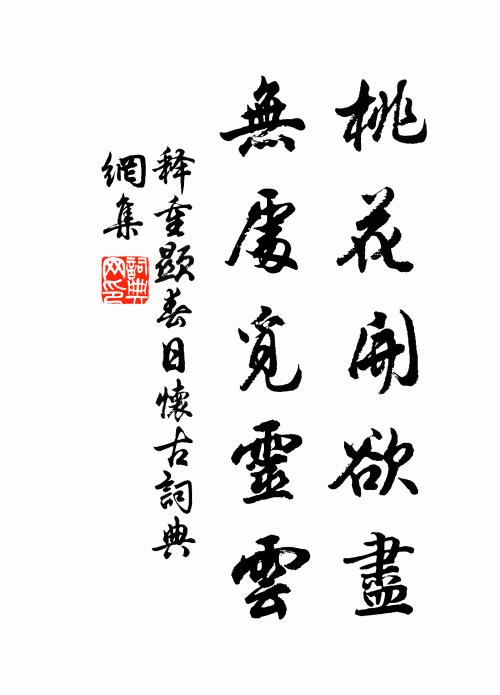 桃花開欲盡
無處覓靈雲
釋重顯春日懷古詞典
網集
詞典網印